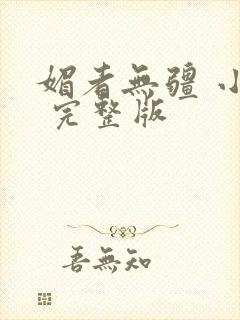 媚者無疆 小
完整版
吾無知